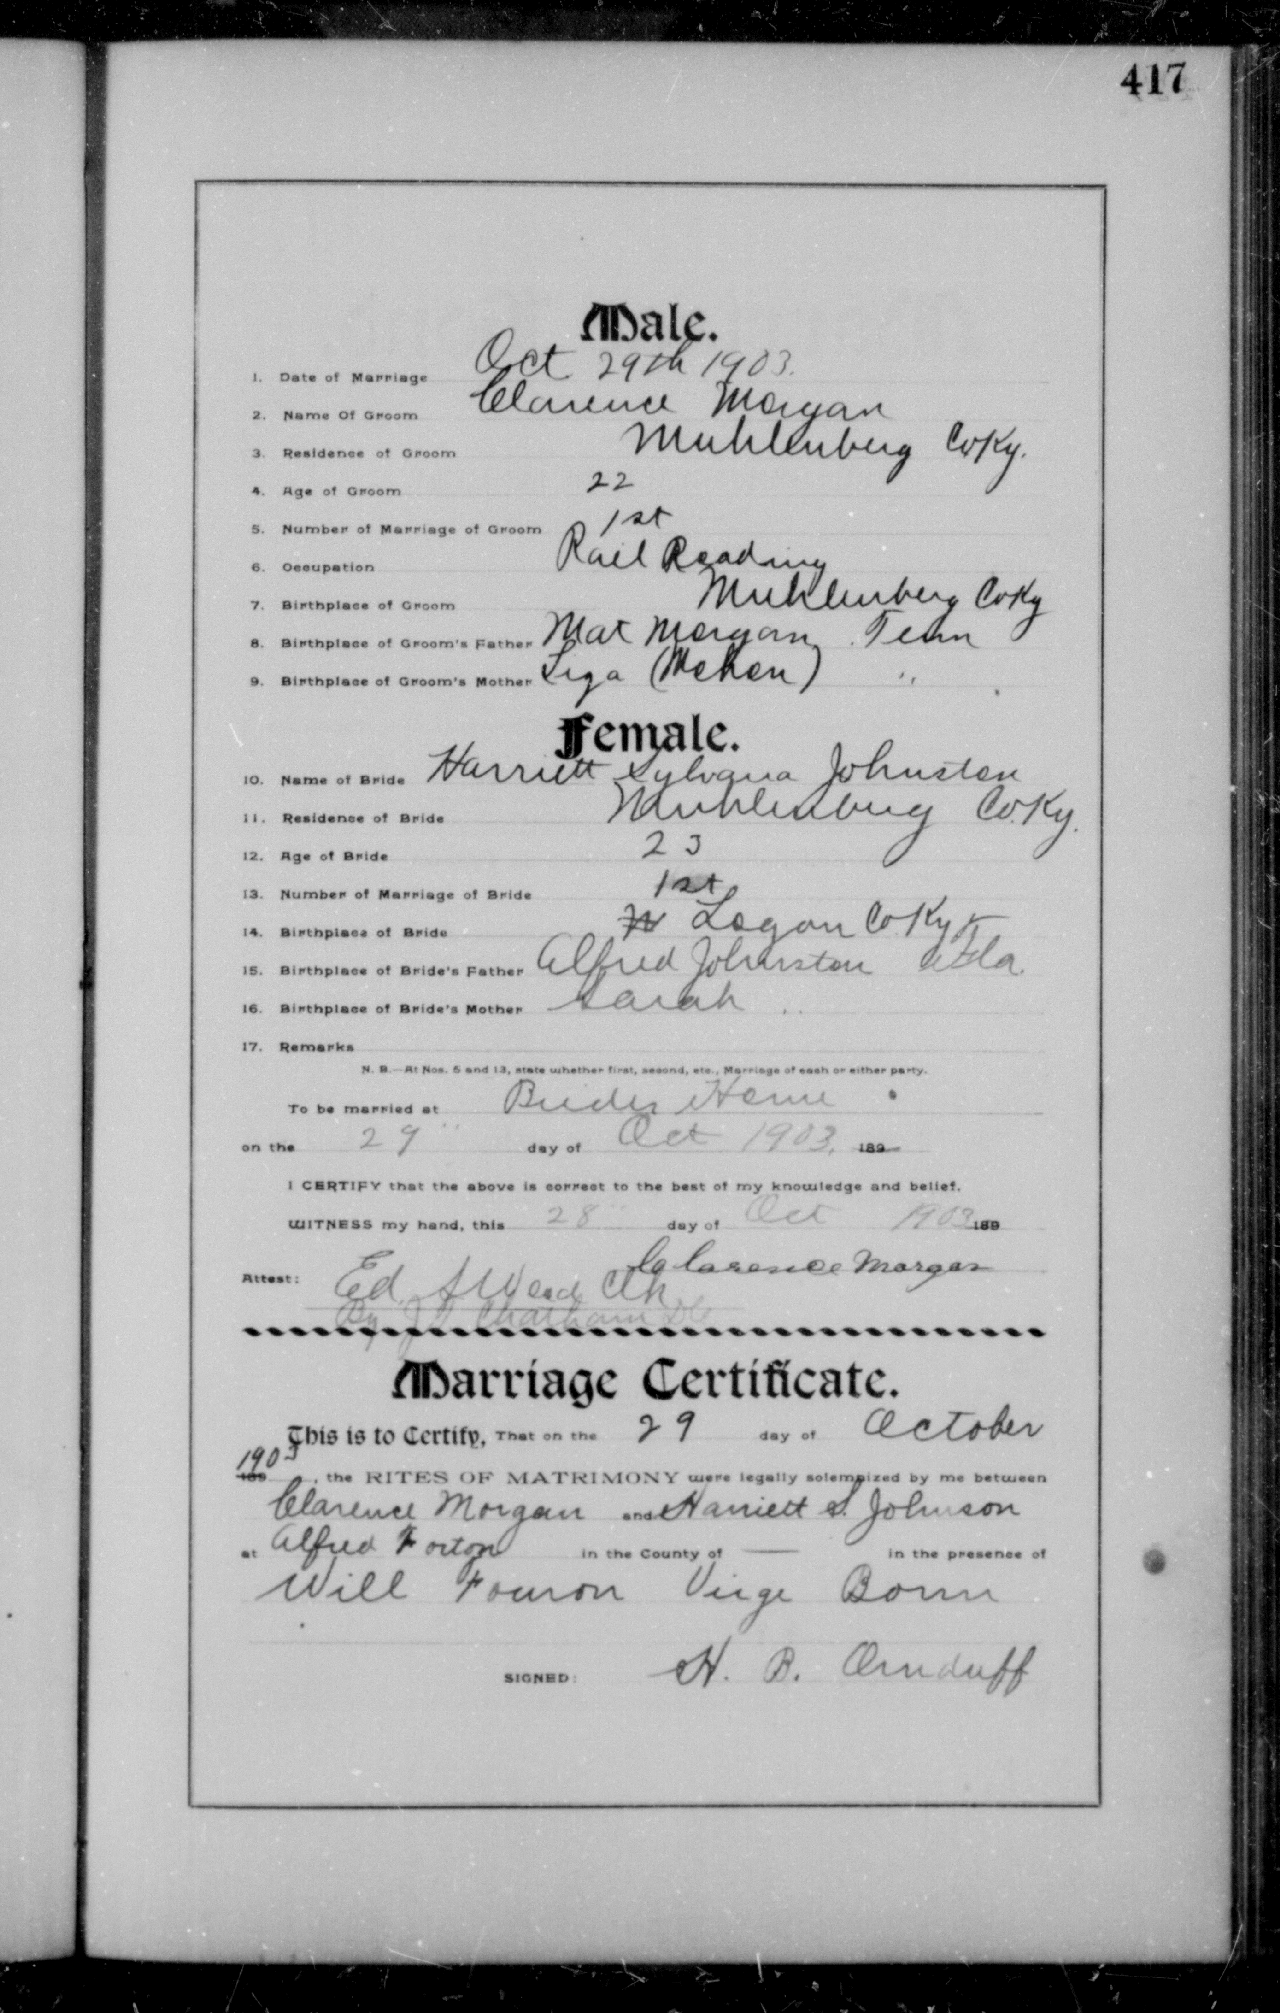 417
Male.
1. Date of Marriage Oct 29th 1903.
2. Name Of Groom Clarence Morgan
3. Residence of Groom Muhlenberg Co Ky.
4. Age of Groom 22
5. Number of Marriage of Groom 1st
6. Occupation Rail Roading
7. Birthplace of Groom Muhlenberg Co Ky
8. Birthplace of Groom's Father Mat Morgan, Tenn
9. Birthplace of Groom's Mother ( ) "
Female.
10. Name of Bride Harriett Sylvana Johnston
11. Residence of Bride Muhlenberg Co. Ky.
12. Age of Bride 23
13. Number of Marriage of Bride 1st
14. Birthplace of Bride Logan Co Ky
15. Birthplace of Bride's Father Alfred Johnston
16. Birthplace of Bride's Mother Sarah "
17. Remarks
N. B.—At Nos. 5 and 13, state whether first, second, etc., Marriage of each or either party.
To be married at Brides Home
on the 29" day of Oct 1903, 189
I CERTIFY that the above is correct to the best of my knowledge and belief.
WITNESS my hand, this 28" day of Oct 1903 189
Clarence Morgan
Attest: Ed. S Wood Clk
By J Chatham DC
Marriage Certificate.
This is to Certify, That on the 29 day of October
1903
189 , the RITES OF MATRIMONY were legally solemnized by me between
Clarence Morgan and Harriett S. Johnson
at Alfred Forton in the County of — in the presence of
Will Virge
SIGNED: H. B. Ornduff